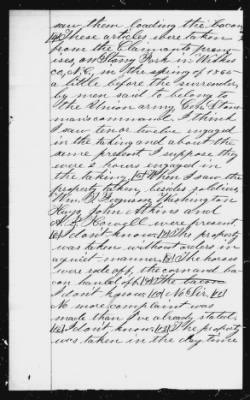 saw them loading the bacon
These articles were taken
from the Claimants prem-
ises, on Stony Fork in Wilkes
co, N.C., in the spring of 1865
a little before the surrender,
by men said to belong to
the Union army, Gen. Stone-
man's command. I think
I saw ten or twelve engaged
in the taking and about the
same present I suppose they
were 2 hours engaged in
the taking, When I saw the
property taken, besides soldiers,
Wm. Ferguson Washington
Hays John Atkins and
A. Howell were present.
I don't know. The property
was taken without orders in
a quiet manner. The horses
were rode off, the corn and ba-
con hauled off. The bacon
I don't know No Sir.
No more complaint was
made than I've already stated.
I don't know. The property
was taken in the day time